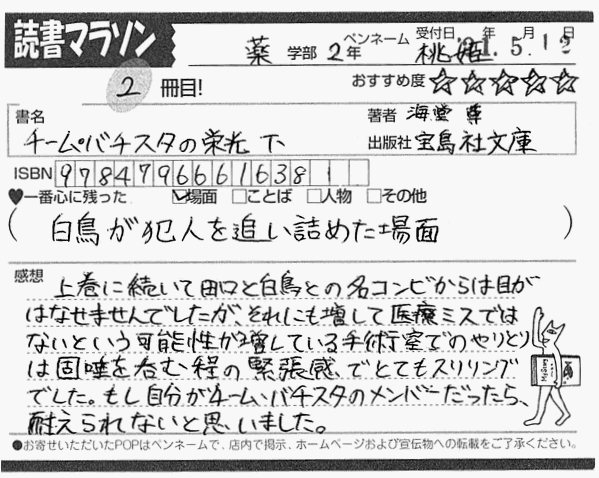 読書マラソン
薬 学部 2年 ペンネーム 桃姫 受付日 '21年 5月 12日
2 冊目! おすすめ度 ☆☆☆☆☆
書名 著者 海堂 尊
チーム・バチスタの栄光 下 出版社 宝島社文庫
ISBN 9784796661638
♥一番心に残った ☑場面 □ことば □人物 □その他
( 白鳥が犯人を追い詰めた場面 )
感想 上巻に続いて田口と白鳥との名コンビからは目が
はなせませんでしたが、それにも増して医療ミスでは
ないという可能性が増している手術室でのやりとり
は固唾を呑む程の緊張感、でとてもスリリング
でした。もし自分がチーム・バチスタのメンバーだったら、
耐えられないと思いました。
●お寄せいただいたPOPはペンネームで、店内で掲示、ホームページおよび宣伝物への転載をご了承ください。